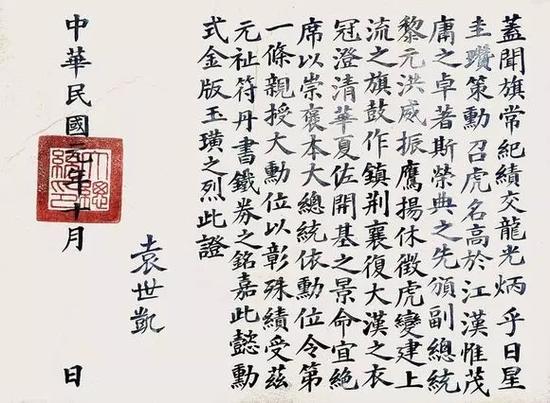 蓋聞旗常紀績交龍光炳乎日星
圭瓚策勳召虎名高於江漢惟茂
庸之卓著斯榮典之先頒副總統
黎元洪威振鷹揚休徵虎變建上
流之旗鼓作鎮荆襄復大漢之衣
冠澄清華夏佐開基之景命宜絶
席以崇褒本大總統依勳位令第
一條親授大勳位以彰殊績受茲
元祉符丹書鐵券之銘嘉此懿勳
式金版玉璜之烈此證
袁世凱
中華民國元年十月 日
大總統印